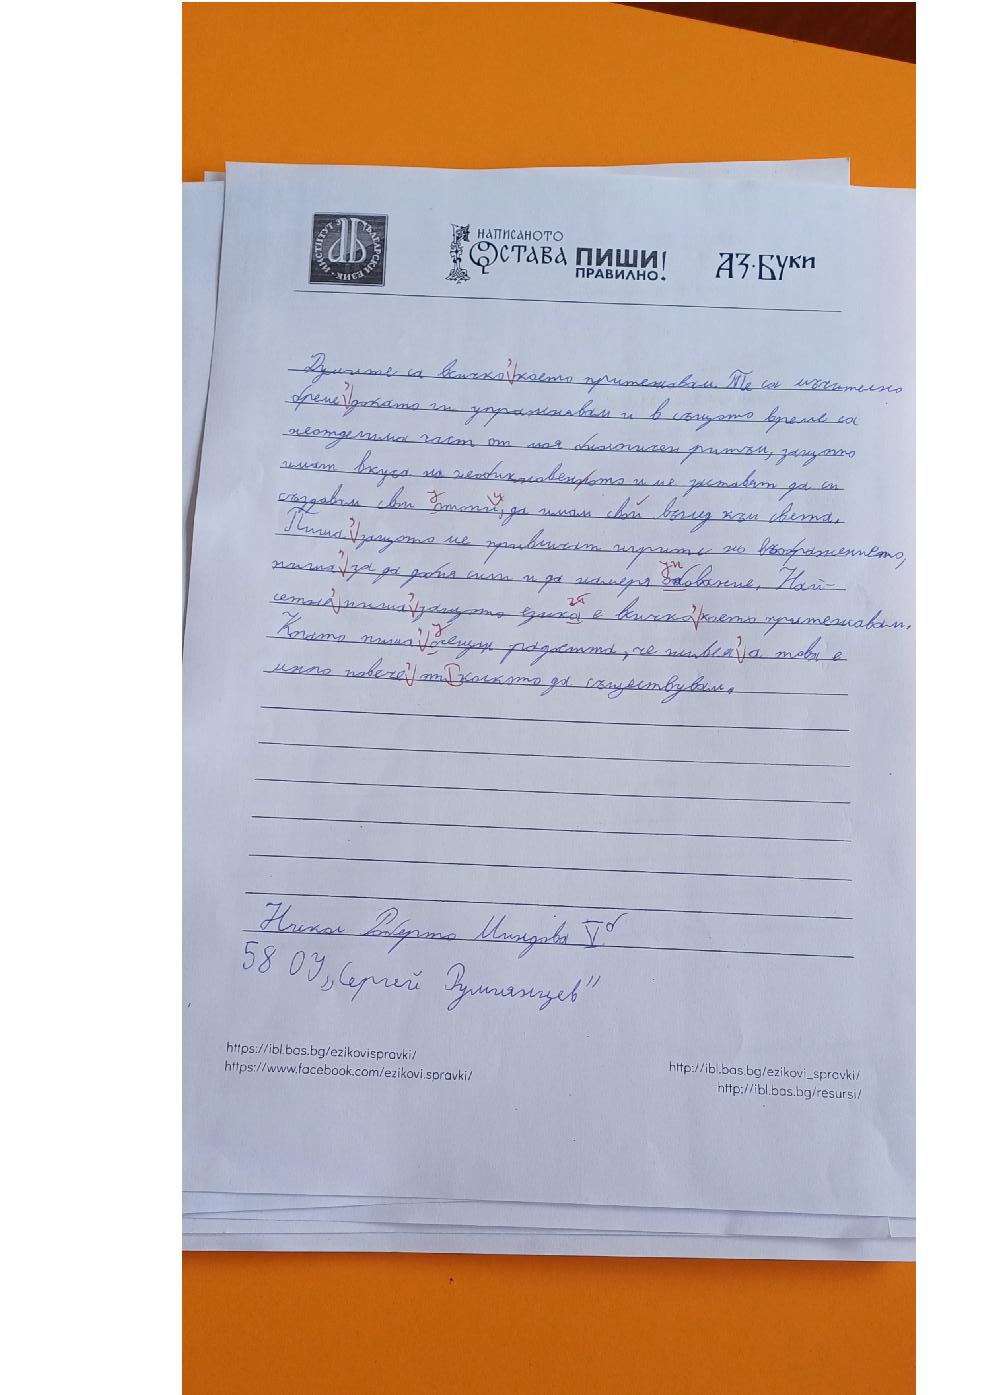 ИНСТИТУТ ЗА БЪЛГАРСКИ ЕЗИК
НАПИСАНОТО
ОСТАВА ПИШИ!
ПРАВИЛНО!
АЗ·БУКИ
Думите са всичко, което притежавам. Те са мъчително
бреме, докато ги упражнявам и в същото време са
неотделима част от моя биологичен ритъм, защото
имат вкуса на необикновеното и ме заставят да си
създавам свои отопи, да имам свой възглед към света.
Пиша, защото ме привличат игрите на въображението,
пиша, за да добия сили и да намеря обование. Най-
сетне, пиша, защото езика е всичко, което притежавам.
Когато пиша, осещам радостта, че живея, а това е
много повече, от колкото да съществувам.
Никол Роберто Миндова V б
58 ОУ „Сергей Румянцев"
https://ibl.bas.bg/ezikovispravki/
https://www.facebook.com/ezikovi.spravki/
http://ibl.bas.bg/ezikovi_spravki/
http://ibl.bas.bg/resursi/